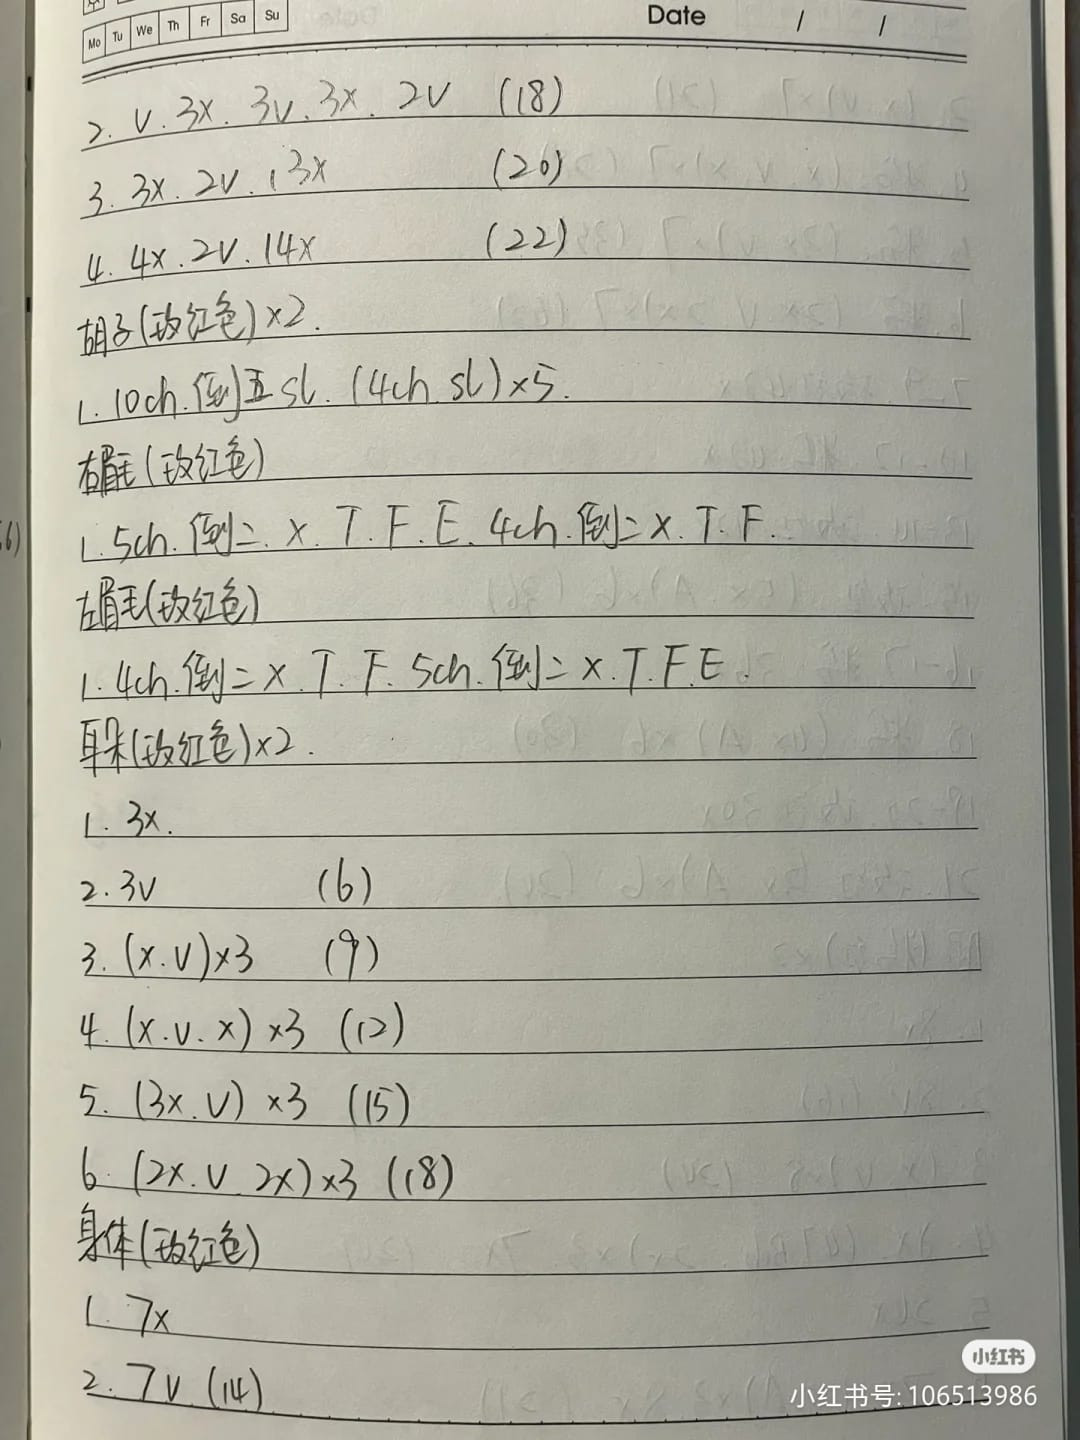 Mo Tu We Th Fr Sa Su
Date / /
2. V. 3X. 3V. 3X. 2V (18)
3. 3X. 2V. 13X (20)
4. 4X. 2V. 14X (22)
胡子(玫红色)×2.
1. 10ch. 倒五sl. (4ch sl)×5.
右眉毛(玫红色)
1. 5ch. 倒二. X. T. F. E. 4ch. 倒二X. T. F.
左眉毛(玫红色)
1. 4ch. 倒二X. T. F. 5ch. 倒二X. T. F. E.
耳朵(玫红色)×2.
1. 3X.
2. 3V (6)
3. (X. V)×3 (9)
4. (X. V. X)×3 (12)
5. (3X. V)×3 (15)
6. (2X. V. 2X)×3 (18)
身体(玫红色)
1. 7X
2. 7V (14)
小红书
小红书号: 106513986